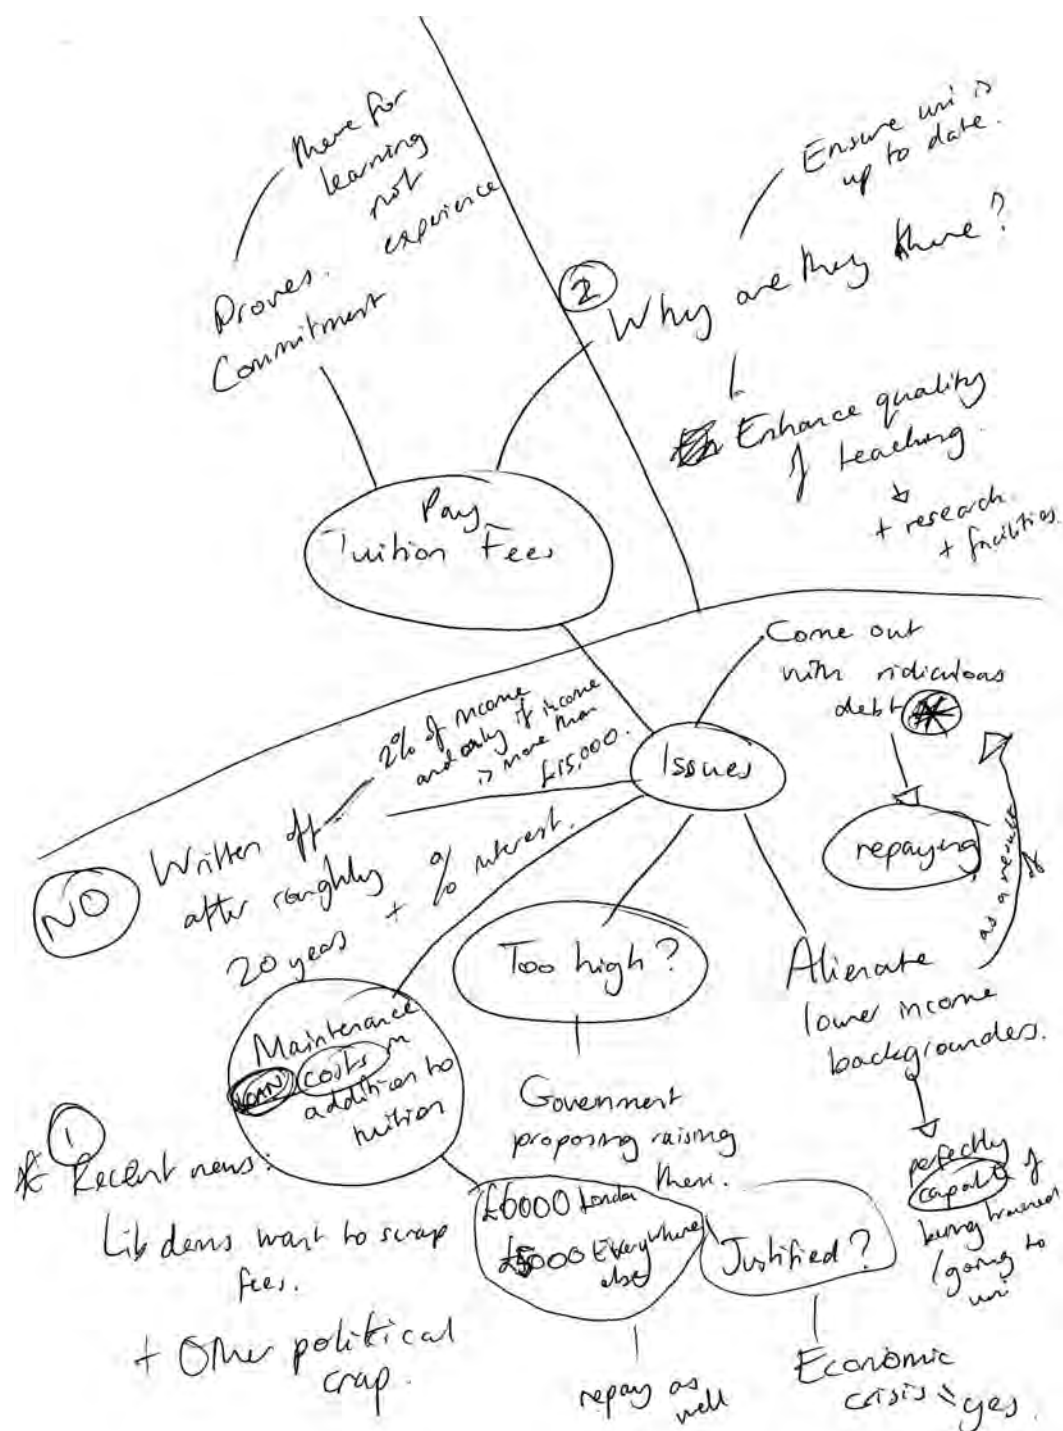 there for
learning
not
experience
Proves
Commitment
Ensure uni is
up to date.
2
Why are they there?
Enhance quality
of teaching.
+ research
+ facilities
Pay
Tuition Fees
Come out
with ridiculous
debt
Issues
2% of income
and only if income
is more than
£15,000.
repaying
as a result
of
NO
Written off
after roughly
20 years
+ % interest.
Too high?
Alienate
lower income
backgrounders.
Maintenance
LOAN costs in
addition to
tuition
Government
proposing raising
them.
perfectly
capable of
being trained
/going to
uni
1
* Recent news:
Lib dems want to scrap
fees.
+ Other political
crap.
£6000 London
£5000 Everywhere
else
Justified?
repay as
well
Economic
crisis = yes.